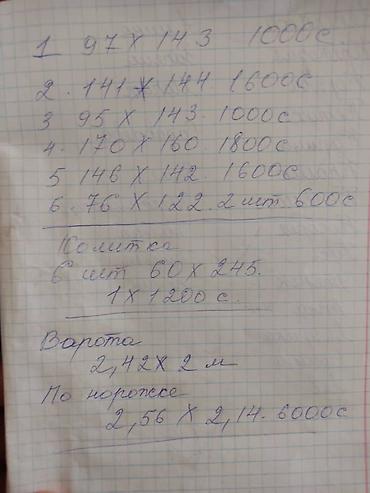 1 97 х 143 1000с
2. 141 х 144 1600с
3 95 х 143. 1000с
4. 170 х 160 1800с
5 146 х 142. 1600с
6. 76 х 122. 2 шт 600с
Колитка
6 шт 60 х 245.
1 х 1200 с.
Варота
2,42 х 2 м
По порожке
2,56 х 2,14. 6000с